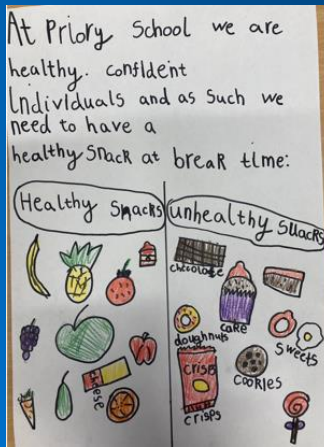 At Priory School we are
healthy. confident
Individuals and as such we
need to have a
healthy snack at break time:
Healthy snacks
unhealthy snacks
chocolate
cake
doughnuts
sweets
cheese
crisps
cookies
crisps